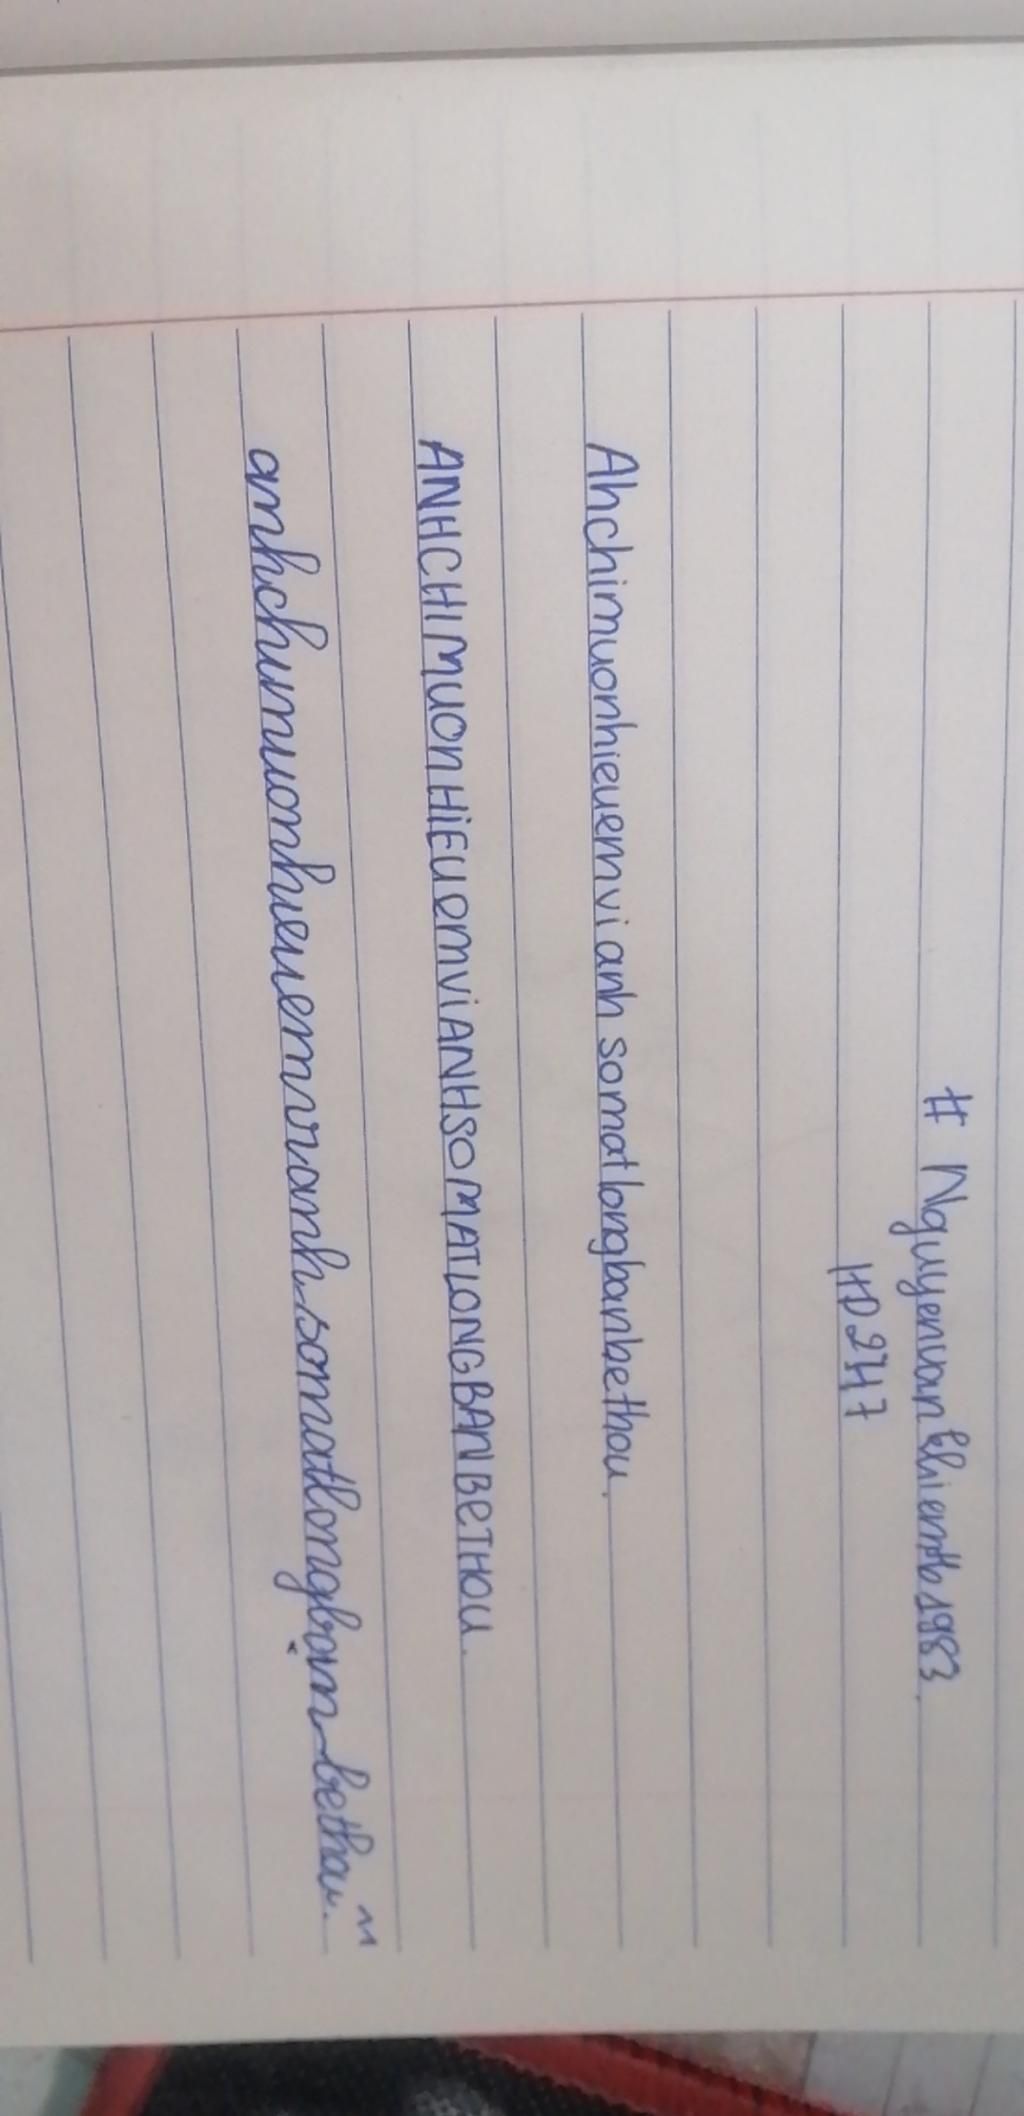 # Nguyenvankhiemtb1983.
HD2747
Ahchimuonhieuemvianh somatlongbanbethou.
ANHCHIMUONHIEUEMVIANHSOMATLONGBANBETHOU.
anhchimuonhieuemvianh.somatlongbanbethou.